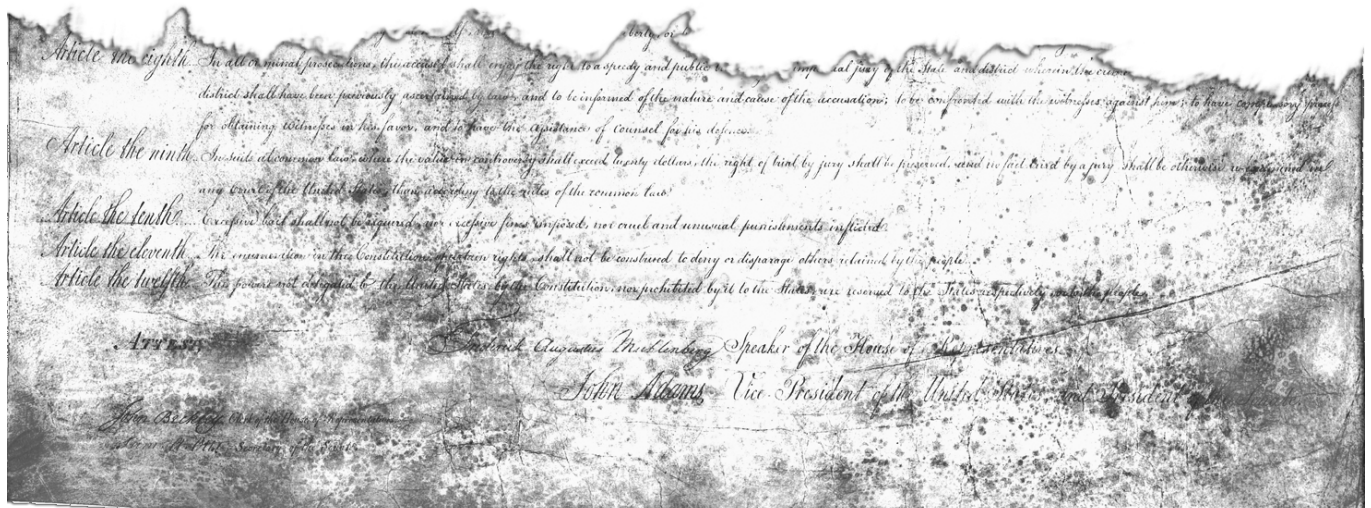 berty, or
Article the eighth. In all criminal prosecutions, the accused shall enjoy the right to a speedy and public jury of the State and district wherein the crime
district shall have been previously ascertained by law, and to be informed of the nature and cause of the accusation; to be confronted with the witnesses against him; to have compulsory process
for obtaining witnesses in his favor, and to have the assistance of counsel for his defence.
Article the ninth. In suits at common law, where the value in controversy shall exceed twenty dollars, the right of trial by jury shall be preserved, and no fact tried by a jury shall be otherwise re-examined in
any Court of the United States, than according to the rules of the common law.
Article the tenth. Excessive bail shall not be required, nor excessive fines imposed, nor cruel and unusual punishments inflicted.
Article the eleventh. The enumeration in the Constitution, of certain rights, shall not be construed to deny or disparage others retained by the people.
Article the twelfth. The powers not delegated to the United States by the Constitution, nor prohibited by it to the States, are reserved to the States respectively, or to the people.
ATTEST,
Frederick Augustus Muhlenberg Speaker of the House of Representatives
John Adams, Vice President of the United States, and President of the
John Beckley, Clerk of the House of Representatives.
Secretary of the Senate.